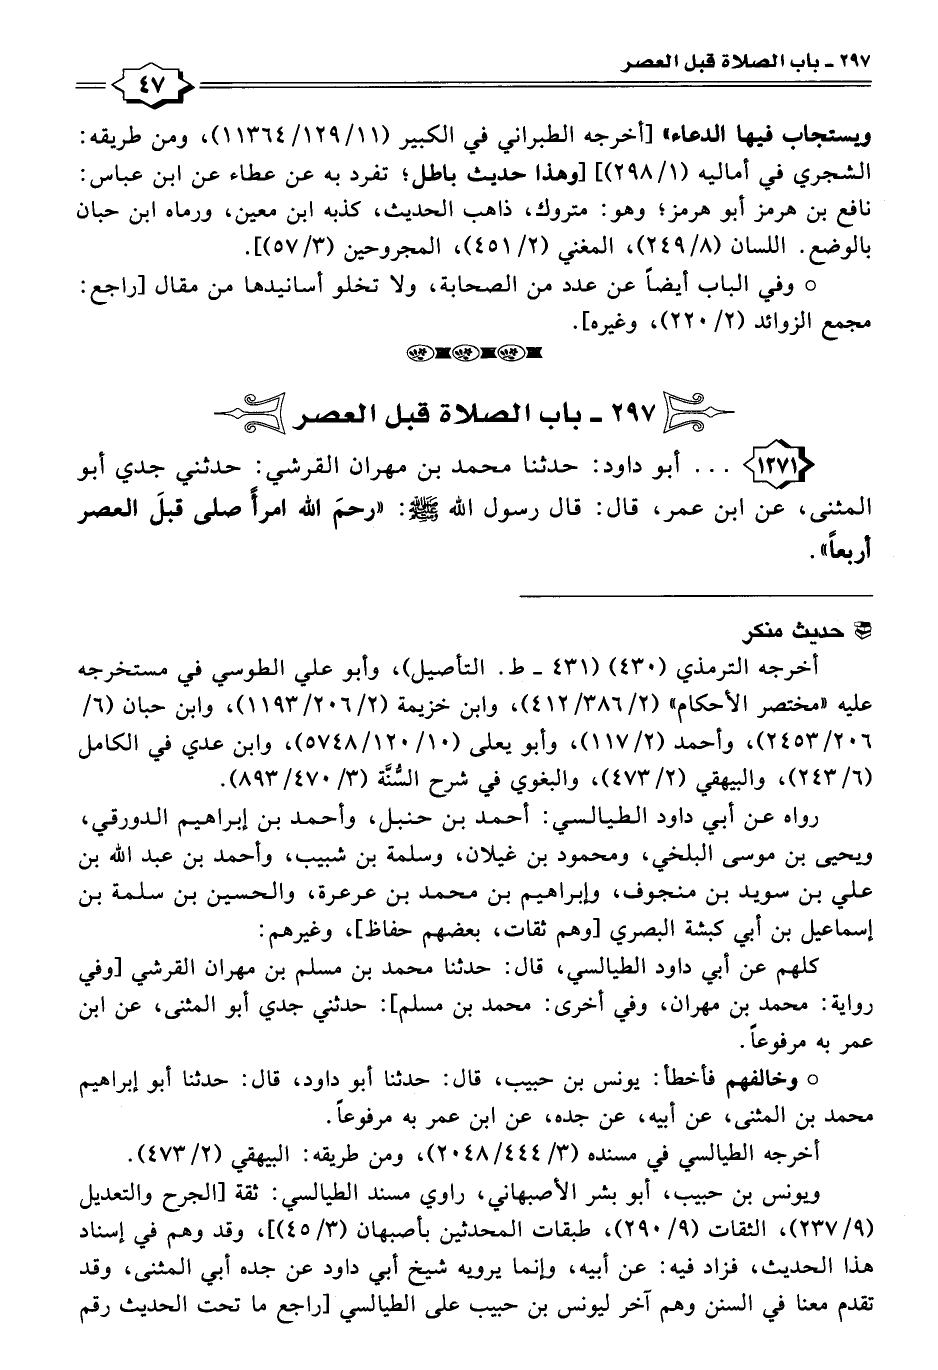 ٢٩٧ - باب الصلاة قبل العصر
٤٧
ويستجاب فيها الدعاء» [أخرجه الطبراني في الكبير (١١/١٢٩/١١٣٦٤)، ومن طريقه:
الشجري في أماليه (١/٢٩٨)] [وهذا حديث باطل؛ تفرد به عن عطاء عن ابن عباس:
نافع بن هرمز أبو هرمز؛ وهو: متروك، ذاهب الحديث، كذبه ابن معين، ورماه ابن حبان
بالوضع. اللسان (٨/٢٤٩)، المغني (٢/٤٥١)، المجروحين (٣/٥٧)].
○ وفي الباب أيضاً عن عدد من الصحابة، ولا تخلو أسانيدها من مقال [راجع:
مجمع الزوائد (٢/٢٢٠)، وغيره].
٢٩٧ - باب الصلاة قبل العصر
١٢٧١ ... أبو داود: حدثنا محمد بن مهران القرشي: حدثني جدي أبو
المثنى، عن ابن عمر، قال: قال رسول الله ﷺ: «رحمَ الله امرأً صلى قبلَ العصر
أربعاً».
حديث منكر
أخرجه الترمذي (٤٣٠) (٤٣١ - ط. التأصيل)، وأبو علي الطوسي في مستخرجه
عليه «مختصر الأحكام» (٢/٣٨٦/٤١٢)، وابن خزيمة (٢/٢٠٦/١١٩٣)، وابن حبان (٦/
٢٠٦/٢٤٥٣)، وأحمد (٢/١١٧)، وأبو يعلى (١٠/١٢٠/٥٧٤٨)، وابن عدي في الكامل
(٦/٢٤٣)، والبيهقي (٢/٤٧٣)، والبغوي في شرح السُّنَّة (٣/٤٧٠/٨٩٣).
رواه عن أبي داود الطيالسي: أحمد بن حنبل، وأحمد بن إبراهيم الدورقي،
ويحيى بن موسى البلخي، ومحمود بن غيلان، وسلمة بن شبيب، وأحمد بن عبد الله بن
علي بن سويد بن منجوف، وإبراهيم بن محمد بن عرعرة، والحسين بن سلمة بن
إسماعيل بن أبي كبشة البصري [وهم ثقات، بعضهم حفاظ]، وغيرهم:
كلهم عن أبي داود الطيالسي، قال: حدثنا محمد بن مسلم بن مهران القرشي [وفي
رواية: محمد بن مهران، وفي أخرى: محمد بن مسلم]: حدثني جدي أبو المثنى، عن ابن
عمر به مرفوعاً.
○ وخالفهم فأخطأ: يونس بن حبيب، قال: حدثنا أبو داود، قال: حدثنا أبو إبراهيم
محمد بن المثنى، عن أبيه، عن جده، عن ابن عمر به مرفوعاً.
أخرجه الطيالسي في مسنده (٣/٤٤٤/٢٠٤٨)، ومن طريقه: البيهقي (٢/٤٧٣).
ويونس بن حبيب، أبو بشر الأصبهاني، راوي مسند الطيالسي: ثقة [الجرح والتعديل
(٩/٢٣٧)، الثقات (٩/٢٩٠)، طبقات المحدثين بأصبهان (٣/٤٥)]، وقد وهم في إسناد
هذا الحديث، فزاد فيه: عن أبيه، وإنما يرويه شيخ أبي داود عن جده أبي المثنى، وقد
تقدم معنا في السنن وهم آخر ليونس بن حبيب على الطيالسي [راجع ما تحت الحديث رقم